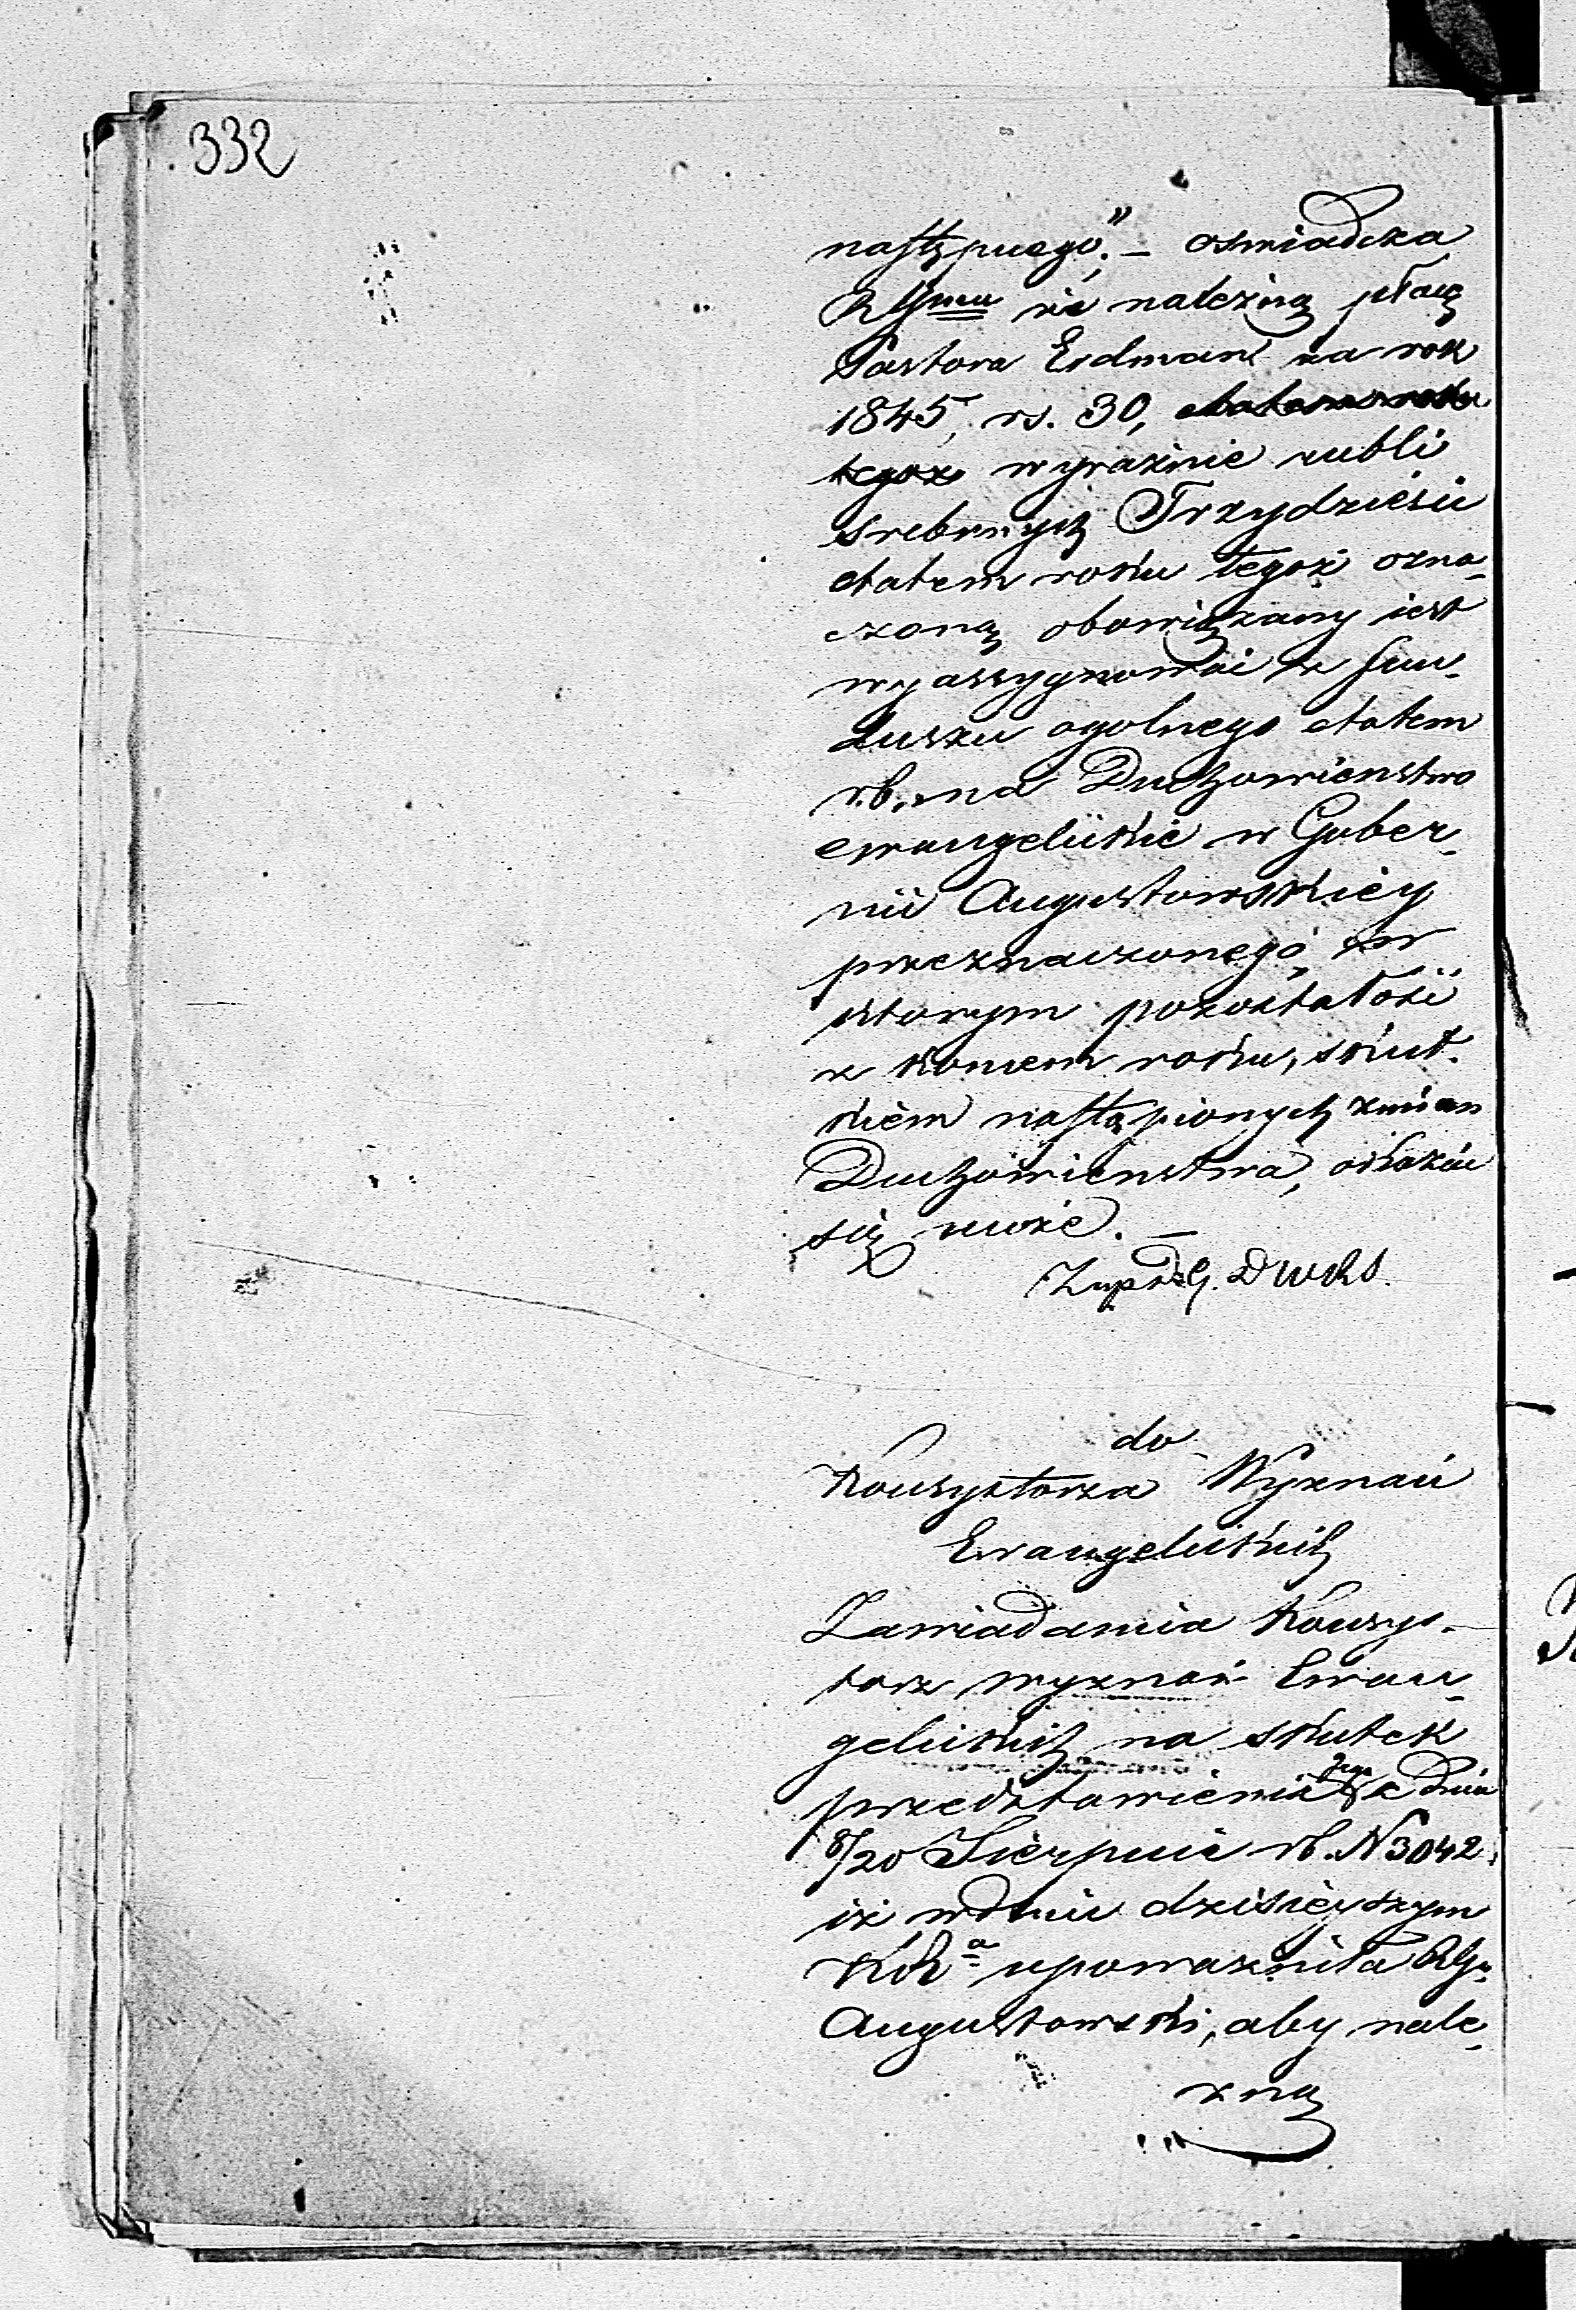 332
następnego." — oswiadcza
RGmu że należną płacę
Pastora Erdman za rok
1845, rs. 30, etatem roku
tegoż wyraźnie rubli
srebrnych Trzydzieści
etatem roku tegoż ozna-
czoną obowiązany iest
wyassygnować z fun-
duszu ogolnego etatem
r.b. na Duchowienstwo
ewangelickie w Guber-
nii Augustowskiey
przeznaczonego, w
ktorym pozostałość
z koncem roku, skut-
kiem nastąpionych zmian
Duchowienstwa, okazać
się może. —
Zup. DWRS.
do
Konsystorza Wyznań
Ewangelickich
Zawiadamia Konsys-
torz wyznań Ewan-
gelickich na skutek
przedstawienia Jego z Dnia
8/20 Sierpnia rb. N 3042
iż w dniu dzisieyszym
KRa upoważniła RGu
Augustowski, aby nale-
żną